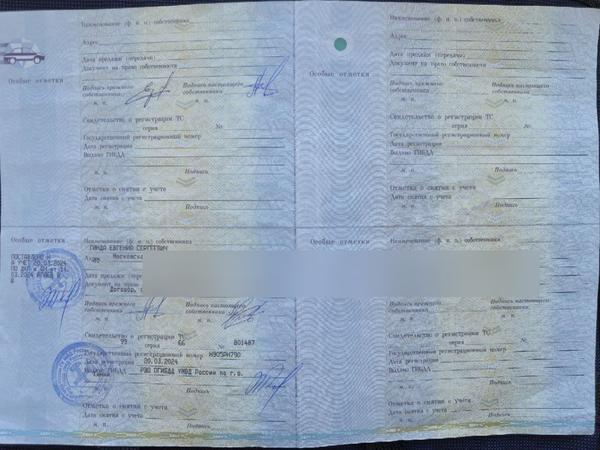 Наименование (ф. и. о.) собственника
Адрес
Дата продажи (передачи)
Документ на право собственности
Особые отметки
Подпись прежнего собственника
Подпись настоящего собственника
М. П.
М. П.
Свидетельство о регистрации ТС
серия №
Государственный регистрационный номер
Дата регистрации
Выдано ГИБДД
М. П. Подпись
Отметка о снятии с учета
Дата снятия с учета
М. П. Подпись
Наименование (ф. и. о.) собственника
Адрес
Дата продажи (передачи)
Документ на право собственности
Особые отметки
Подпись прежнего собственника
Подпись настоящего собственника
М. П.
М. П.
Свидетельство о регистрации ТС
серия №
Государственный регистрационный номер
Дата регистрации
Выдано ГИБДД
М. П. Подпись
Отметка о снятии с учета
Дата снятия с учета
М. П. Подпись
Особые отметки
Наименование (ф. и. о.) собственника
ЕВГЕНИЙ СЕРГЕЕВИЧ
Адрес Московская
Дата продажи
Документ на
Договор,
Подпись прежнего собственника
Подпись настоящего собственника
М. П.
М. П.
Свидетельство о регистрации ТС
99 66 801487
серия №
Государственный регистрационный номер
Дата регистрации 20.03.2024
Выдано ГИБДД РЭО ОГИБДД УМВД России по г.о.
Подпись
Отметка о снятии с учета
Дата снятия с учета
М. П. Подпись
Особые отметки
Наименование (ф. и. о.) собственника
Подпись прежнего собственника
Подпись настоящего собственника
М. П.
М. П.
Свидетельство о регистрации ТС
серия №
Государственный регистрационный номер
Дата регистрации
Выдано ГИБДД
М. П. Подпись
Отметка о снятии с учета
Дата снятия с учета
М. П. Подпись